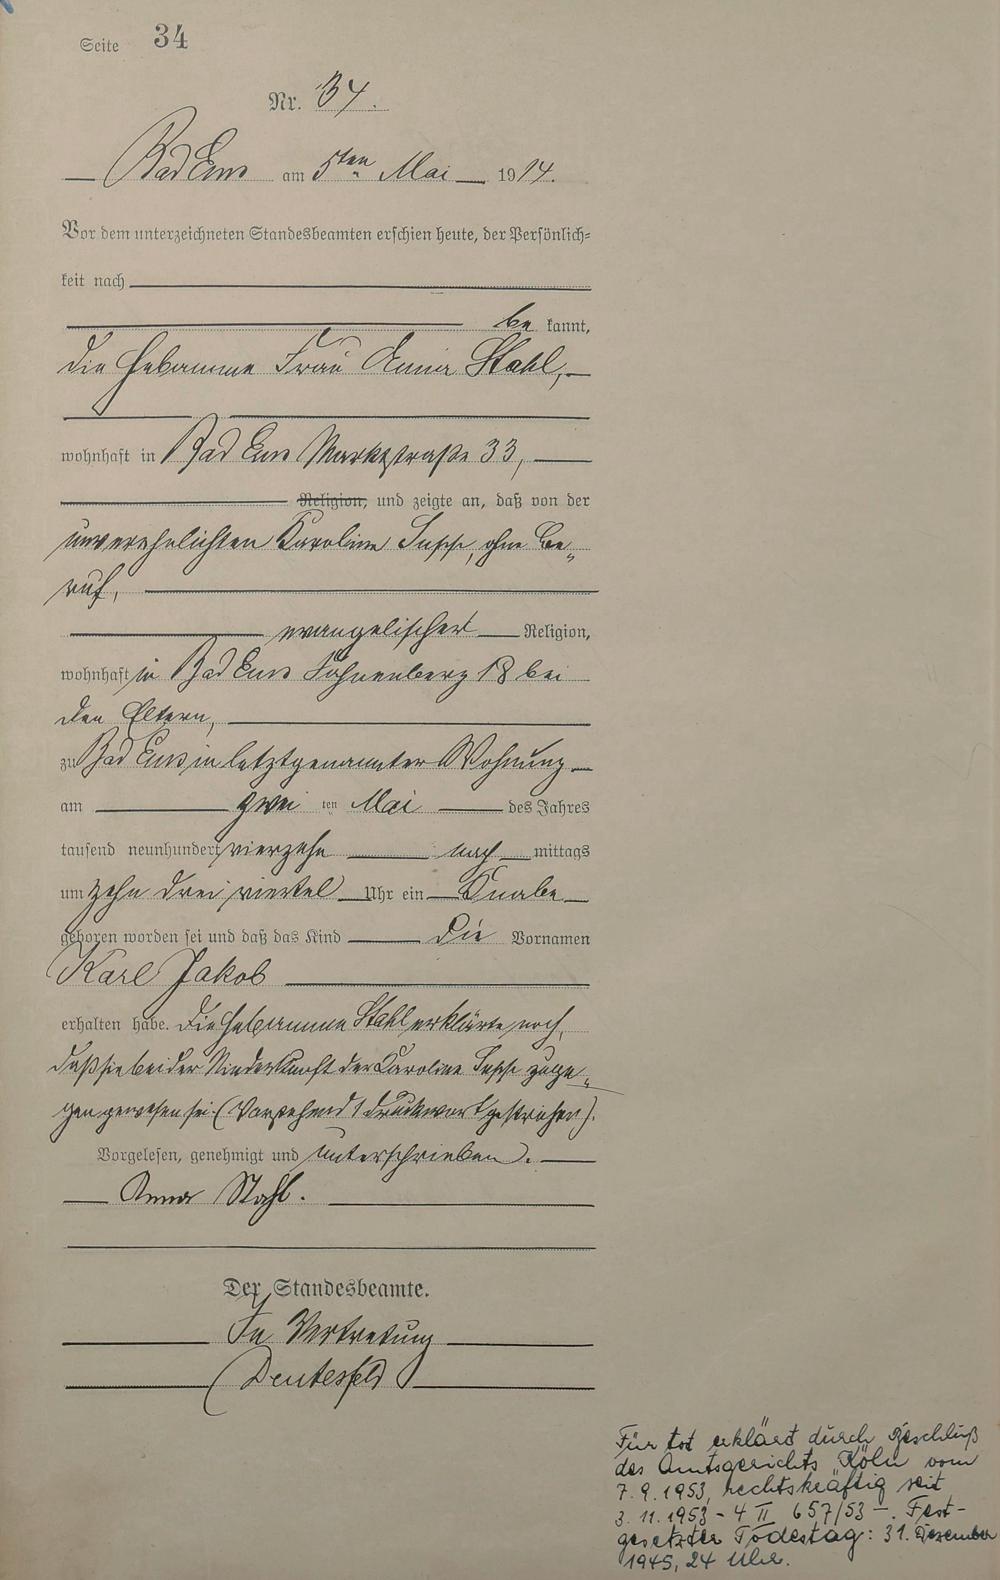 Seite 34
Nr. 34.
Bad Ems am 5ten Mai 1914.
Vor dem unterzeichneten Standesbeamten erschien heute, der Persönlich-
keit nach
be kannt,
die Hebamme Frau Anna Stahl,
wohnhaft in Bad Ems Marktstraße 33,
Religion, und zeigte an, daß von der
unverehelichten Karoline, ohne Be-
ruf,
evangelischer Religion,
wohnhaft in Bad Ems 18 bei
den Eltern,
zu Bad Ems in letztgenannter Wohnung
am zwei ten Mai des Jahres
tausend neunhundert vierzehn nach mittags
um zehn drei viertel Uhr ein Knabe
geboren worden sei und daß das Kind die Vornamen
Karl Jakob
erhalten habe. Die Hebamme Stahl erklärte noch,
daß sie bei der Niederkunft der Karoline zuge-
gen gewesen sei. (Vorstehend 1 Druckwort gestrichen).
Vorgelesen, genehmigt und unterschrieben.
Anna Stahl.
Der Standesbeamte.
In Vertretung
Für tot erklärt durch Beschluß
des Amtsgerichts Köln vom
7.9.1953, rechtskräftig seit
3.11.1953 - 4 II 657/53 -. Fest-
gesetzter Todestag: 31. Dezember
1945, 24 Uhr.